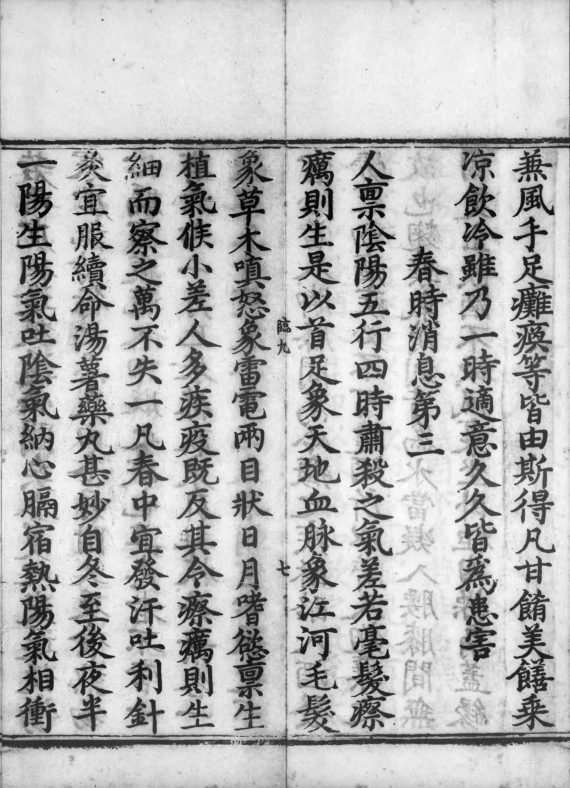 兼風手足癱瘓等皆由斯得凡甘餚美饍乗
凉飲冷雖乃一時適意久久皆爲患害
春時消息第三
人禀陰陽五行四時肅殺之氣差若毫髮瘵
癘則生是以首足象天地血脉象江河毛髮
臨九
七
象草木嗔怒象雷電兩目狀日月嗜慾禀生
植氣候小差人多疾疫既反其令瘵癘則生
細而察之萬不失一凡春中宜發汗吐利針
灸宜服續命湯薯藥丸甚妙自冬至後夜半
一陽生陽氣吐陰氣納心膈宿熱陽氣相衝